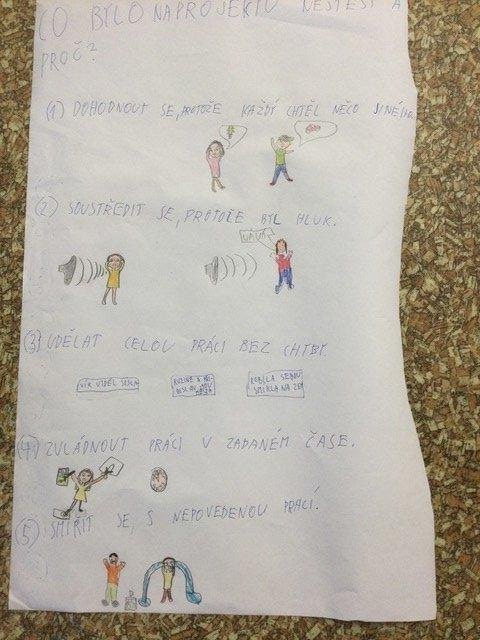 CO BYLO NA PROJEKTU NEJTĚŽŠÍ A
PROČ?
(1) DOHODNOUT SE, PROTOŽE KAŽDÝ CHTĚL NĚCO JINÉHO.
(2) SOUSTŘEDIT SE, PROTOŽE BYL HLUK.
(3) UDĚLAT CELOU PRÁCI BEZ CHYBY.
(4) ZVLÁDNOUT PRÁCI V ZADANÉM ČASE.
(5) SMÍŘIT SE, S NEPOVEDENOU PRACÍ.